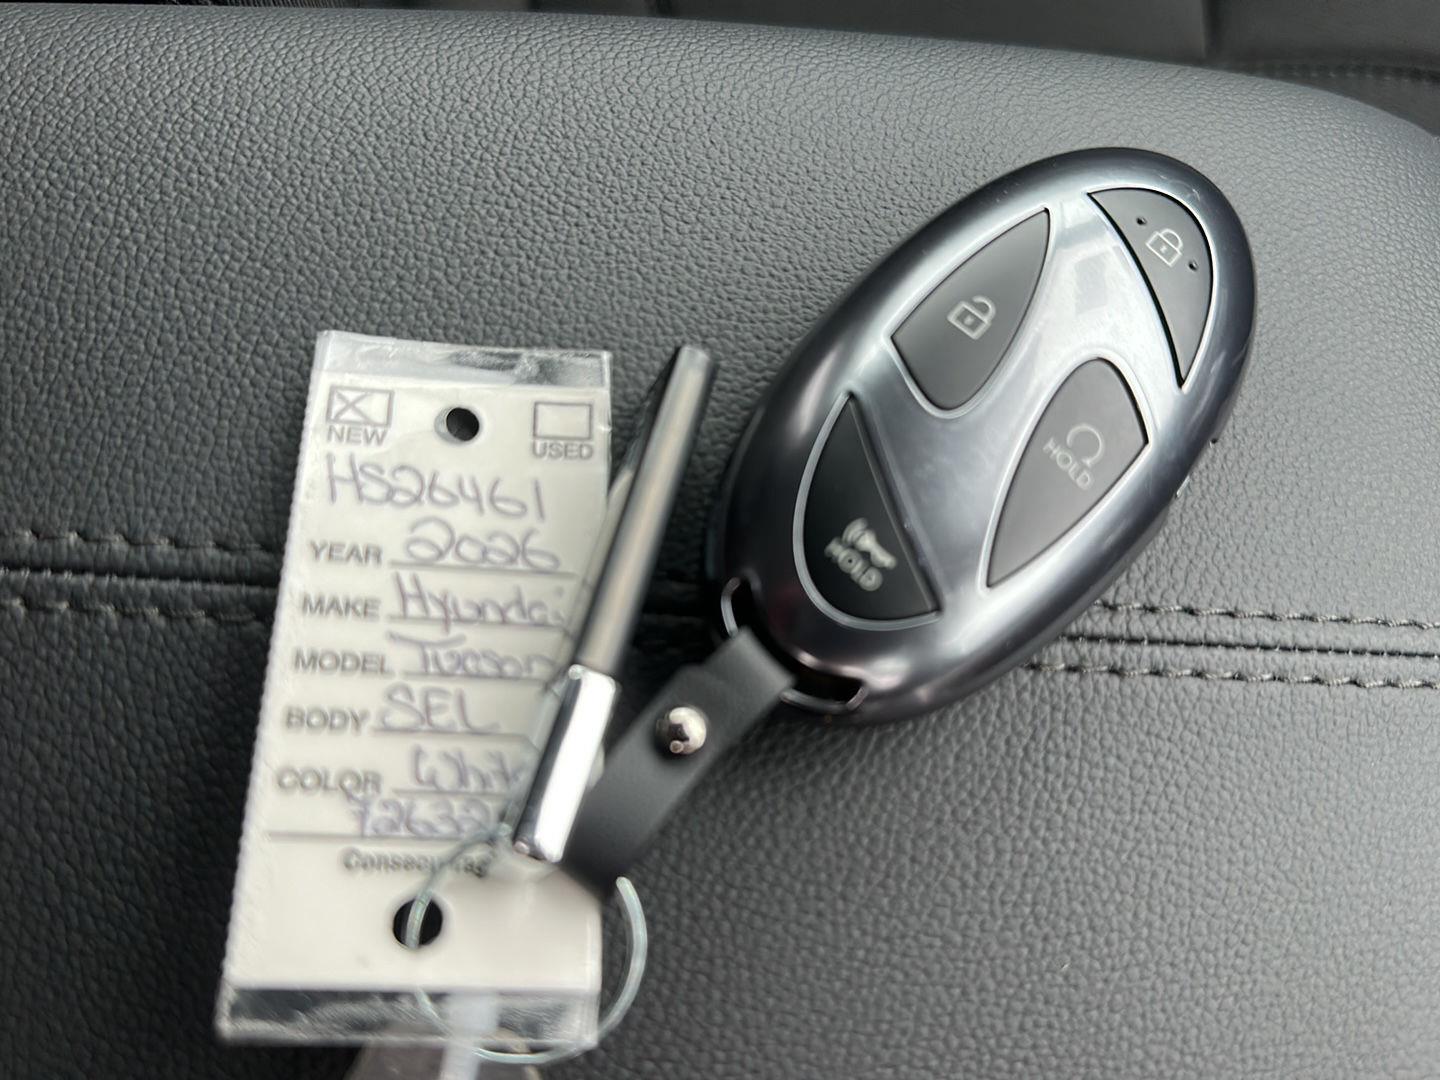 NEW USED
HS26461
YEAR 2026
MAKE Hyundai
MODEL Tucson
BODY SEL
COLOR White
HOLD
HOLD